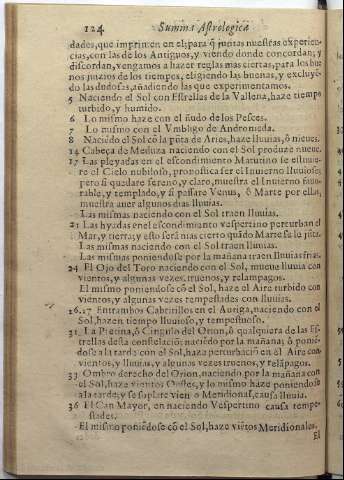 124 Summa Astrologica
dades, que imprimen en el; para q̃ juntas nuestras experien-
cias, con las de los Antiguos, y viendo donde concordan; y
discordan, vengamos a hazer reglas mas ciertas, para los bue
nos juizios de los tiempos, eligiendo las buenas, y excluyẽ-
do las dudosas, añadiendo las que experimentamos.
5 Naciendo el Sol con Estrellas de la Vallena, haze tiempo
turbido, y humido.
6 Lo mismo haze con el ñudo de los Pesces.
7 Lo mismo con el Vmbligo de Andromeda.
8 Naciẽdo el Sol cõ la pũta de Aries, haze lluuias, ò nieues.
14 Cabeça de Meduza naciendo con el Sol produze nieue.
17 Las pleyadas en el escondimiento Matutino se
re el Cielo nubloso, pronostica ser el Inuierno lluuioso;
pero si quedare sereno, y claro, muestra el Inuierno fauo-
rable, y templado, y si passare Venus, ò Marte por ella,
muestra auer algunos dias lluuias.
Las mismas naciendo con el Sol traen lluuias.
21 Las hyadas en el escondimiento vespertino perturban el
Mar, y tierra; y esto serà mas cierto quãdo Marte se le jũta.
Las mismas naciendo con el Sol traen lluuias.
Las mismas poniendose por la mañana traen lluuias frias.
24 El Ojo del Toro naciendo con el Sol, mueue lluuia con
vientos, y algunas vezes, truenos, y relampagos.
El mismo poniendose cõ el Sol, haze el Aire turbido con
vientos, y algunas vezes tempestades con lluuias.
16.17 Entrambos Cabritillos en el Auriga, naciendo con el
Sol, hazen tiempo lluuioso, y tempestuoso.
31 La Pretina, ò Cingulo del Orion, ò qualquiera de las Es-
trellas desta constelaciõ; naciẽdo por la mañana; ò poniẽ-
dose a la tarde con el Sol, haze perturbaciõ en el Aire con
vientos, y lluuias, y algunas vezes truenos, y relãpagos.
33 Ombro derecho del Orion, naciendo por la mañana con
el Sol, haze vientos Oestes, y lo mismo haze poniendose
a la tarde; y se soplare vien o Meridional, causa lluuia.
36 El Can Mayor, en naciendo Vespertino causa tempe-
stades.
El mismo poniẽdose cõ el Sol, haze viẽtos Meridionales.
El